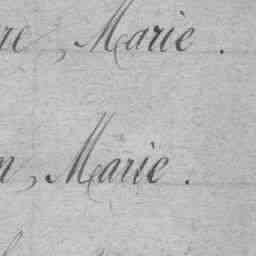 re, Marie.
n, Marie.